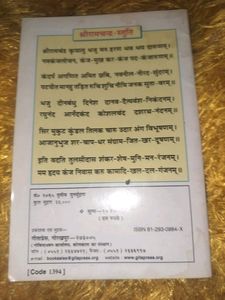 श्रीरामचन्द्र-स्तुति
श्रीरामचंद्र कृपालु भजु मन हरण भव भय दारुणम्।
नवकंजलोचन, कंज-मुख कर-कंज पद-कंजारुणम्॥
कंदर्प अगणित अमित छबि, नवनील-नीरद-सुंदरम्।
पटपीत मानहु तड़ित रुचि शुचि नौमि जनक सुता-वरम्॥
भजु दीनबंधु दिनेश दानव-दैत्यवंश-निकंदनम्।
रघुनंद आनँदकंद कोशलचंद दशरथ-नंदनम्॥
सिर मुकुट कुंडल तिलक चारु उदार अंग विभूषणम्।
आजानुभुज शर-चाप-धर संग्राम-जित-खर-दूषणम्॥
इति वदति तुलसीदास शंकर-शेष-मुनि-मन-रंजनम्।
मम हृदय कंज निवास करु कामादि-खल-दल-गंजनम्॥
कुल मुद्रण
ISBN 81-293-0884-X
गीताप्रेस, गोरखपुर—२७३००५
e-mail: booksales@gitapress.org
www.gitapress.org
[Code 1394]